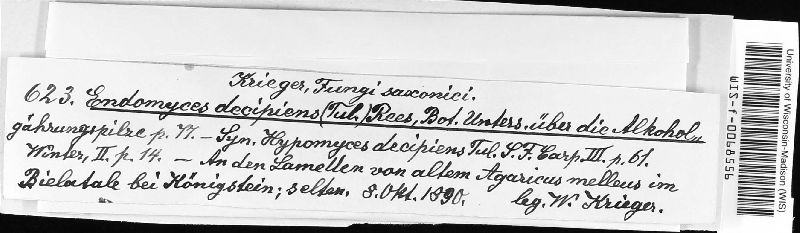 Krieger, Fungi saxonici.
623. Endomyces decipiens (Tul.) Rees, Bot. Unters. über die Alkohol-
gährungspilze p. 77. – Syn. Hypomyces decipiens Tul. S. F. Carp. III. p. 61.
Winter, II. p. 14. – An den Lamellen von altem Agaricus melleus im
Bielatale bei Königstein; selten. 8. Okt. 1890. leg. W. Krieger.
University of Wisconsin-Madison (WIS)
WIS-f-0068556